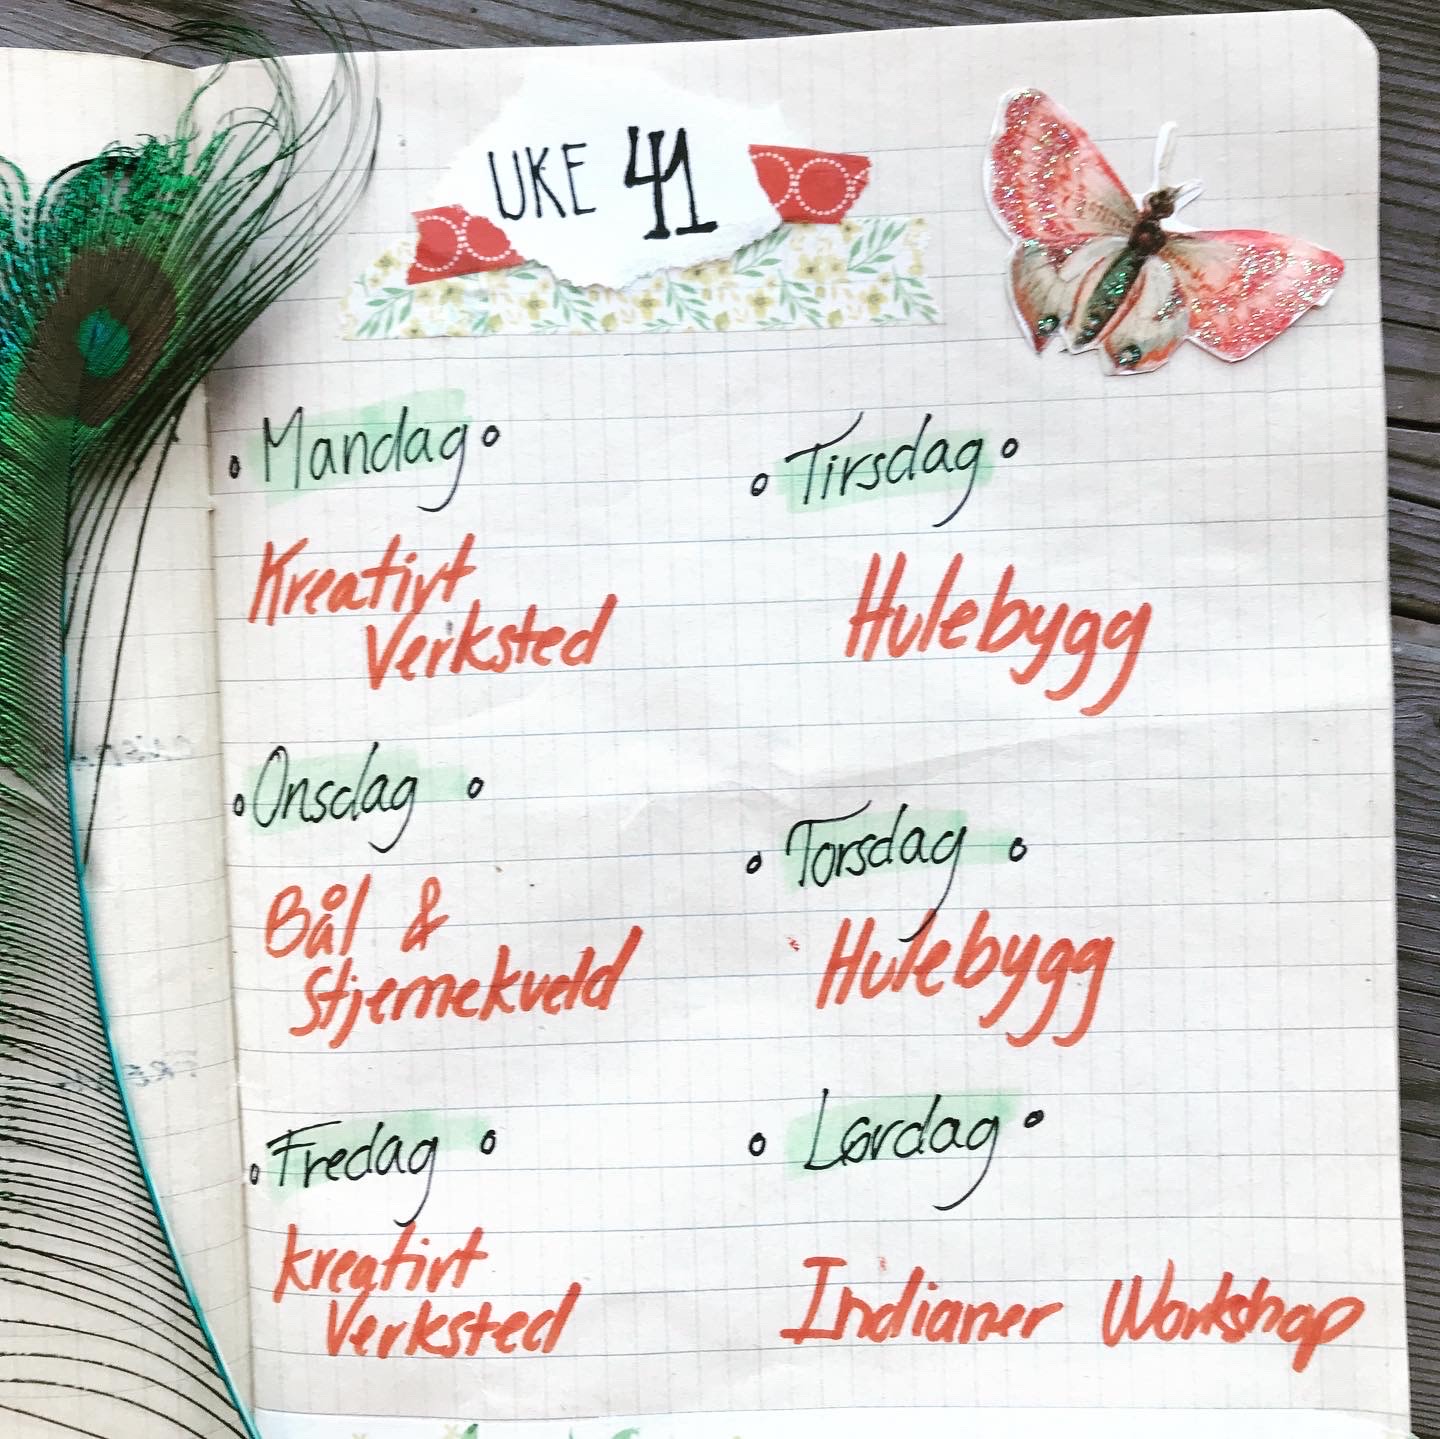 UKE 41
Mandag
Kreativt
Verksted
Tirsdag
Hulebygg
Onsdag
Bål &
Stjernekveld
Torsdag
Hulebygg
Fredag
Kreativt
Verksted
Lørdag
Indianer Workshop